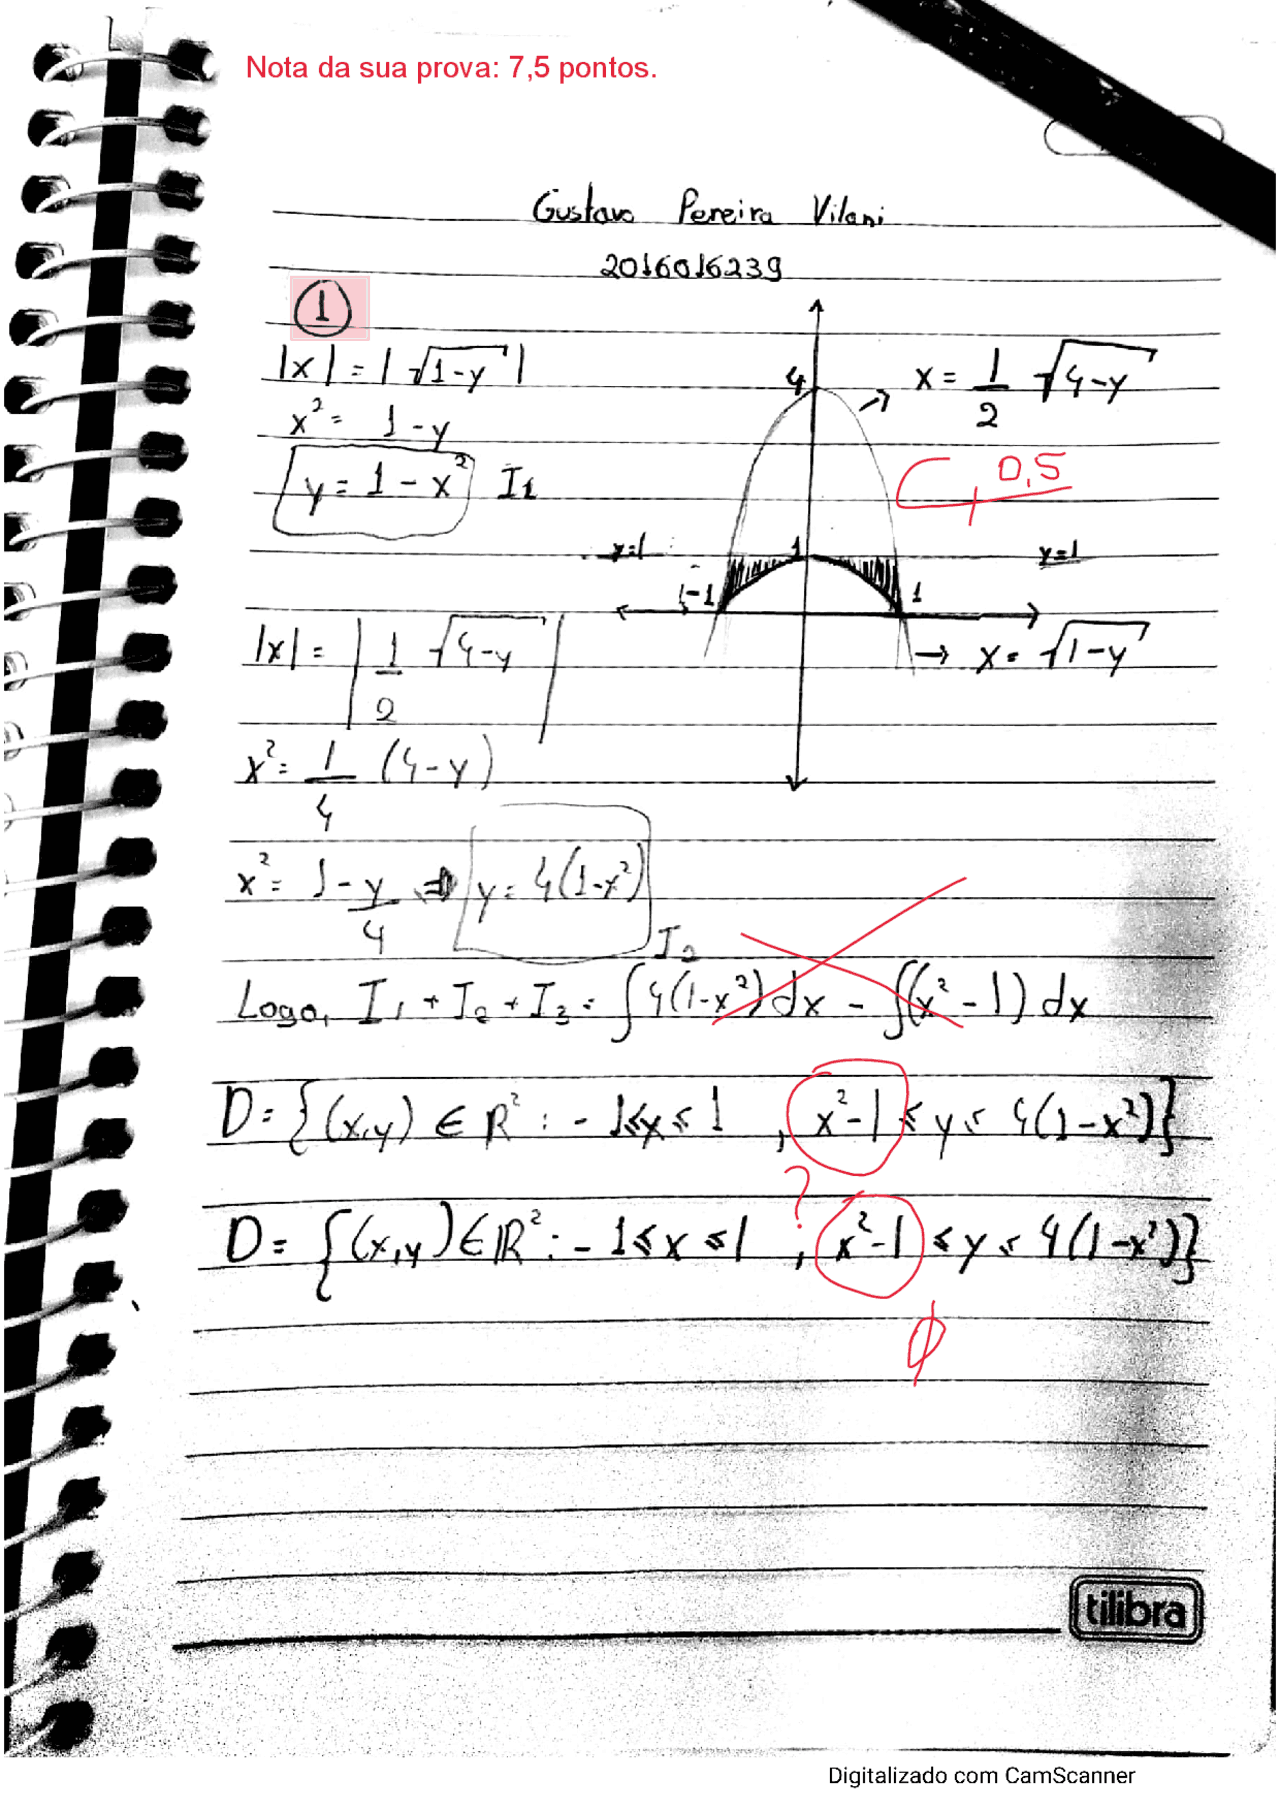 Nota da sua prova: 7,5 pontos.
Gustavo Pereira Vilani
2016016239
1
|x| = |√(1-y)|
x² = 1-y
y = 1-x² I₁
4
x = 1/2 √(4-y)
0,5
y=1 1 y=1
-1 1
x = √(1-y)
|x| = |1/2 √(4-y)|
x² = 1/4 (4-y)
x² = 1-y/4 ⇒ y = 4(1-x²) I₂
Logo, I₁ + I₂ + I₃ = ∫4(1-x²)dx - ∫(x²-1)dx
D = {(x,y) ∈ R² : -1≤x≤1 , x²-1 ≤ y ≤ 4(1-x²)}
?
D = {(x,y) ∈ R² : -1≤x≤1 , x²-1 ≤ y ≤ 4(1-x²)}
φ
tilibra
Digitalizado com CamScanner